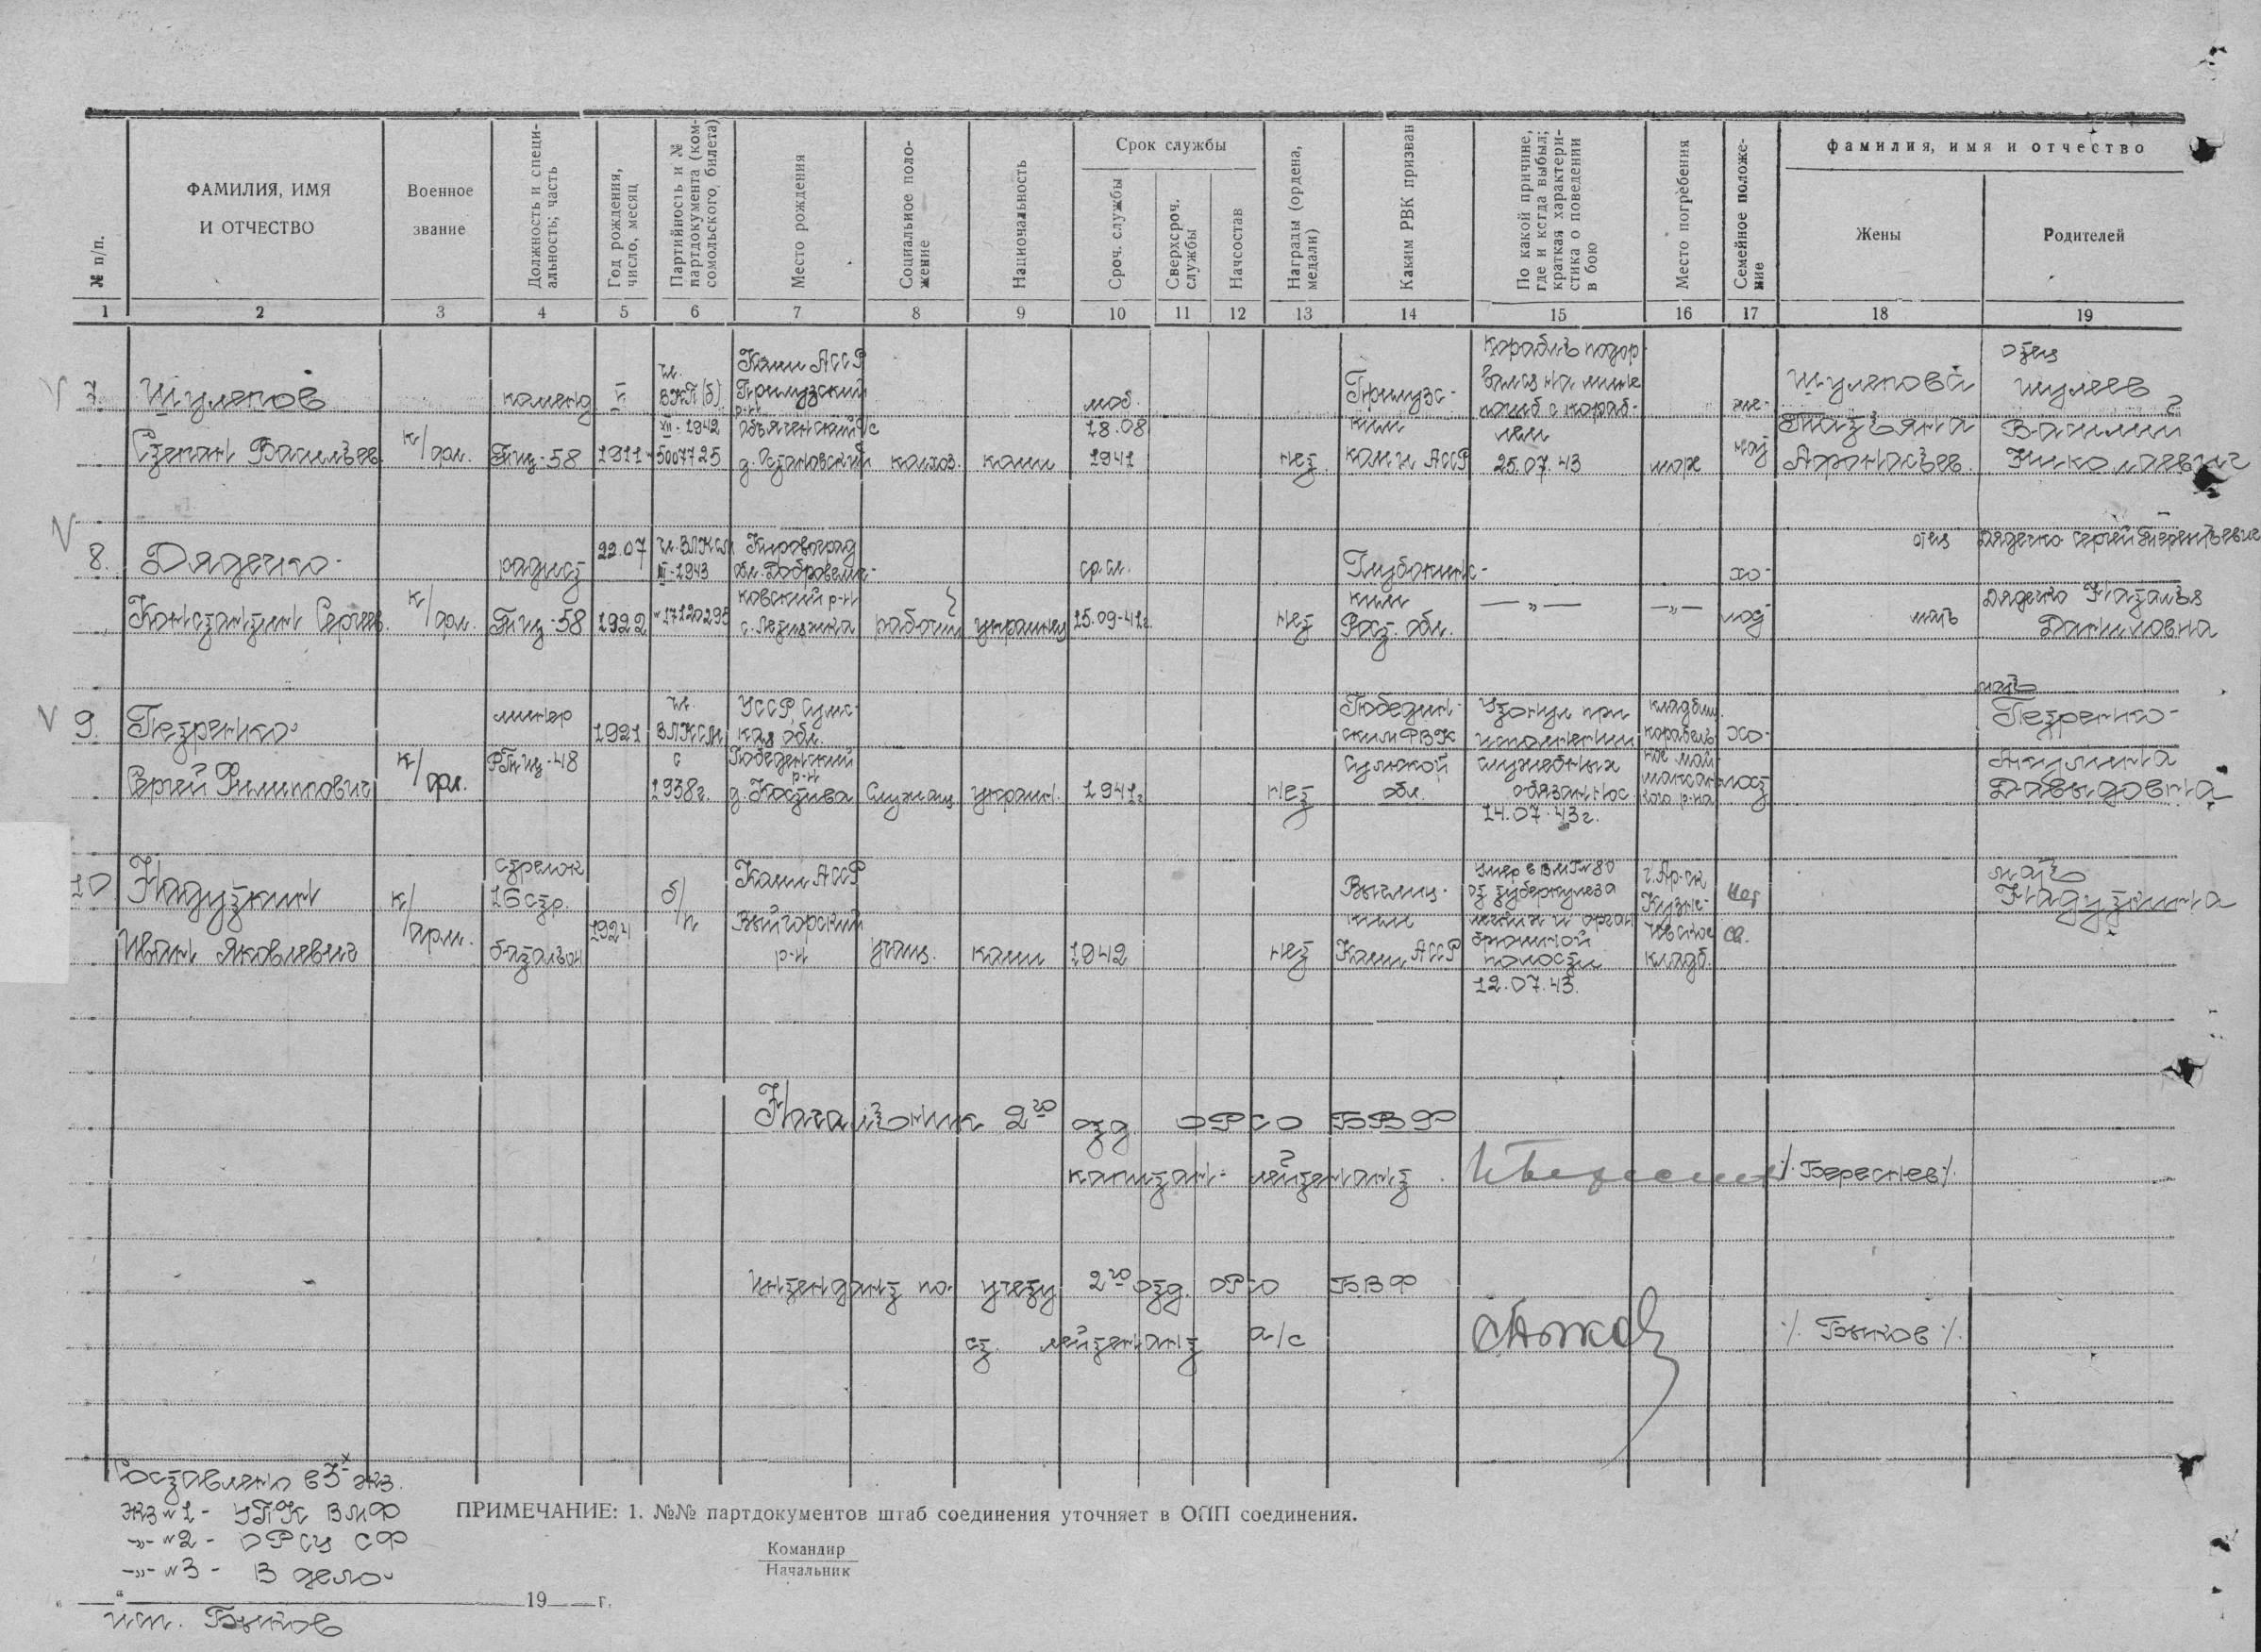 № п/п.
ФАМИЛИЯ, ИМЯ
И ОТЧЕСТВО
Военное
звание
Должность и специ-
альность; часть
Год рождения,
число, месяц
Партийность и №
партдокумента (ком-
сомольского, билета)
Место рождения
Социальное поло-
жение
Национальность
Срок службы
Сроч. службы
Сверхсроч.
службы
Начсостав
Награды (ордена,
медали)
Каким РВК призван
По какой причине,
где и когда выбыл;
краткая характери-
стика о поведении
в бою
Место погребения
Семейное положе-
ние
фамилия, имя и отчество
Жены
Родителей
1 2 3 4 5 6 7 8 9 10 11 12 13 14 15 16 17 18 19
7.
Шулепов
Степан Васильев.
к/фл.
команд
Тщ-58
1911
чл.
ВКП(б)
XII-1942
5007725
Коми АССР
Прилузский
р-н
Объячевский с/с
д. Остановская
колхоз.
коми
моб.
18.08
1941
нет.
Прилузс-
ким
Коми АССР
Корабль подор-
вался на мине
погиб с кораб-
лем
25.07.43
море
же-
нат
Шулепова
Татьяна
Афонасьев.
отец
Шулеев
Василий
Николаевич
8.
Дядечко
Константин Сергеев.
к/фл.
радист
Тщ-58
22.07
1922
чл. ВЛКСМ
III-1943
№17120295
Кировоград
обл. Добровелич-
ковский р-н
с. Лепижка
рабочий
украинец
ср.сл.
15.09-41г.
нет
Глубокинс-
ким
Рост. обл.
—"—
—"—
хо-
лост
отец
Дядечко Сергей Терентьевич
мать
Дядечко Наталья
Даниловна
9.
Петренко
Сергей Филиппович
к/фл.
минер
РТщ-48
1921
чл.
ВЛКСМ
с
1938г.
УССР, Сумс-
кая обл.
Гюбеденский
р-н
д. Костива
Служащ
украин.
1941г
нет
Гюбедин-
ским РВК
Сумской
обл.
Утонул при
исполнении
служебных
обязаннос
14.07.43г.
кладбищ.
корабель
ное май
максан
кого р-на
хо-
лост
мать
Петренко
Акулина
Давыдовна
10
Надуткин
Иван Яковлевич
к/арм.
стрелок
16 стр.
батальон
1924
б/п
Коми АССР
Выйгорский
р-н
учащ.
коми
1942
нет
Вычлиц-
ким
Коми АССР
Умер в ВМГ№80
от туберкулеза
легких и орган
брюшной
полости
12.07.43.
г. Ар-ск
Кузне-
чевское
кладб.
Нет
св.
мать
Надуткина
Начальник 2го отд ОРСО БВФ
капитан-лейтенант
/. Береснев/.
Интендант по учету 2го отд. ОРСО БВФ
ст. лейтенант а/с
/. Быков /.
Составлено в 3х экз.
экз №1 - УПК ВМФ
-"- №2 - ОРСУ СФ
-"- №3 - В дело
ПРИМЕЧАНИЕ: 1. №№ партдокументов штаб соединения уточняет в ОПП соединения.
Командир
Начальник
" 19 г.
исп. Быков